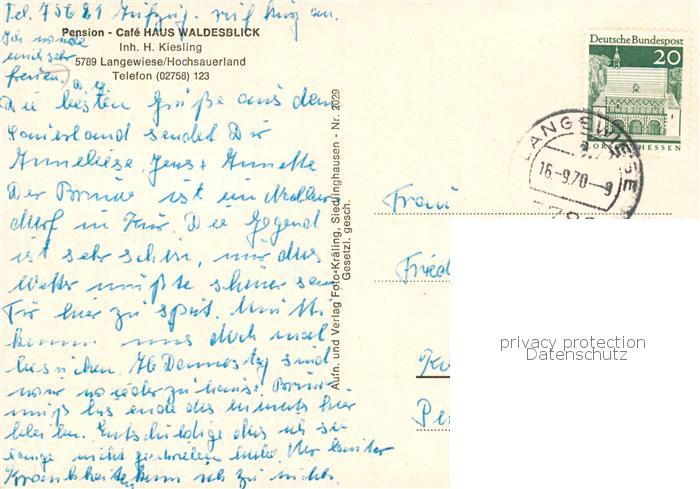 Tel. 75681 ruf mich an.
Ich würde
mich sehr
freuen.
Pension - Café HAUS WALDESBLICK
Inh. H. Kiesling
5789 Langewiese/Hochsauerland
Telefon (02758) 123
Die besten Grüße aus dem
Sauerland sendet Dir
Anneliese Jens + Annette
Der Bruder ist ein
in Kur. Die Gegend
ist sehr schön, nur das
Wetter müßte schöner sein
Für hier zu spät.
kommen uns doch mal
besuchen. Ab Donnerstag sind
wir wieder zuhause.
muß bis ende des Monats hier
bleiben. Entschuldige das ich so
lange nicht geschrieben habe. Vor lauter
Krankheiten kam ich zu nichts.
Aufn. und Verlag Foto-Kräling, Siedlinghausen - Nr. 2029
Gesetzl. gesch.
Deutsche Bundespost
20
LORSCH/HESSEN
LANGEWIESE
16.-9.70-9
Frau
Fried
privacy protection
Datenschutz